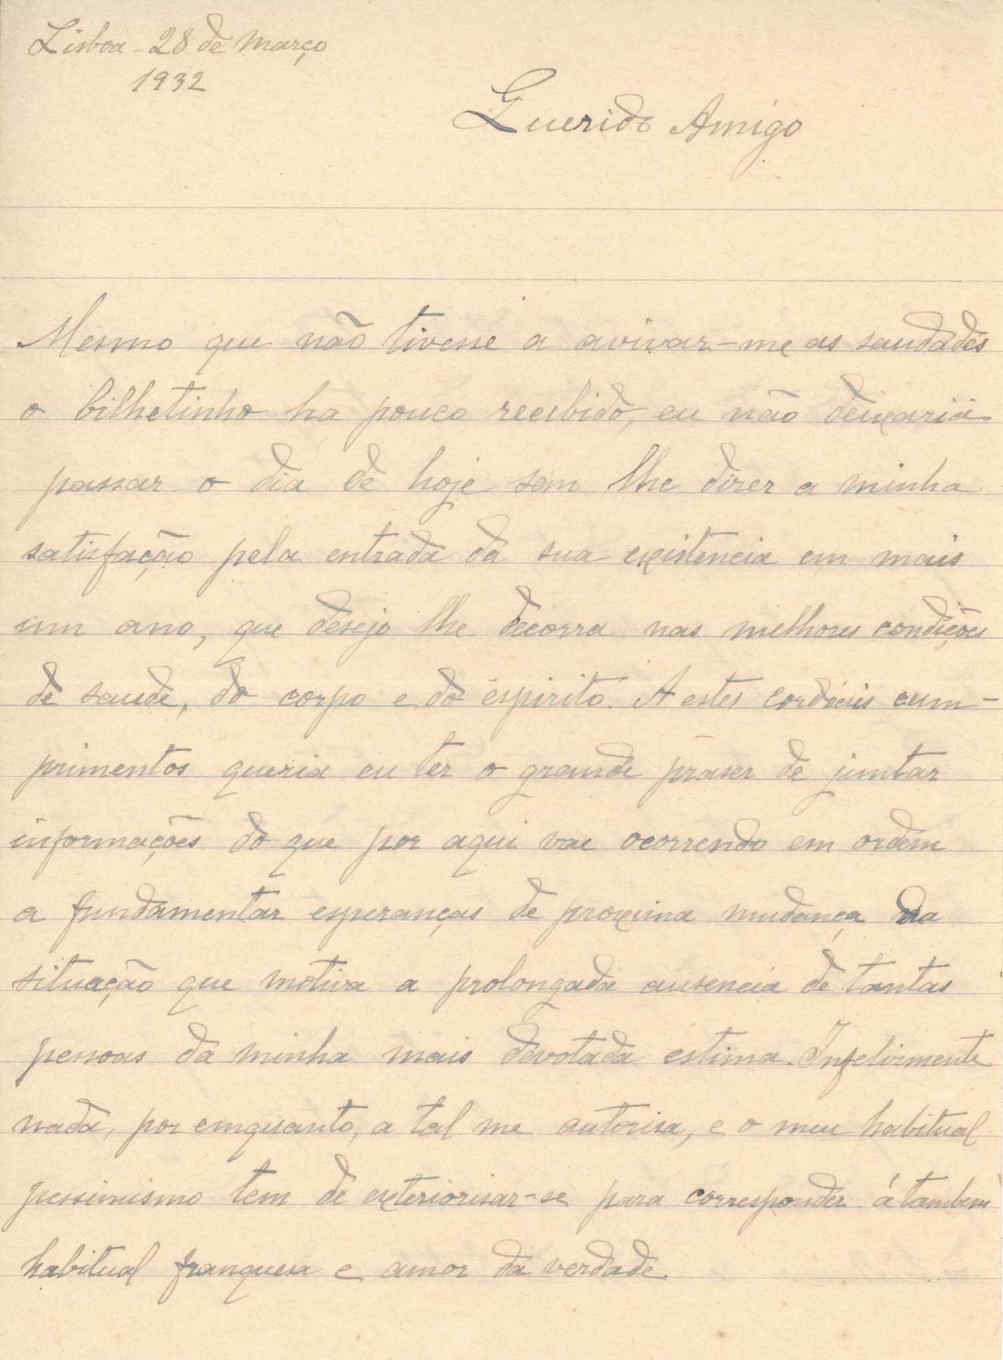 Lisboa - 28 de Março
1932
Querido Amigo
Mesmo que não tivesse a avivar-me as saudades
o bilhetinho ha pouco recebido, eu não deixaria
passar o dia de hoje sem lhe dizer a minha
satisfação pela entrada da sua existencia em mais
um ano, que desejo lhe decorra nas melhores condições
de saude, do corpo e do espirito. A estes cordeais cum-
primentos queria eu ter o grande praser de juntar
informações do que por aqui vae ocorrendo em ordem
a fundamentar esperanças de proxima mudança da
situação que motiva a prolongada ausencia de tantas
pessoas da minha mais devotada estima. Infelizmente
nada, por emquanto, a tal me autorisa, e o meu habitual
pessimismo tem de exteriorisar-se para corresponder á tambem
habitual franquesa e amor da verdade